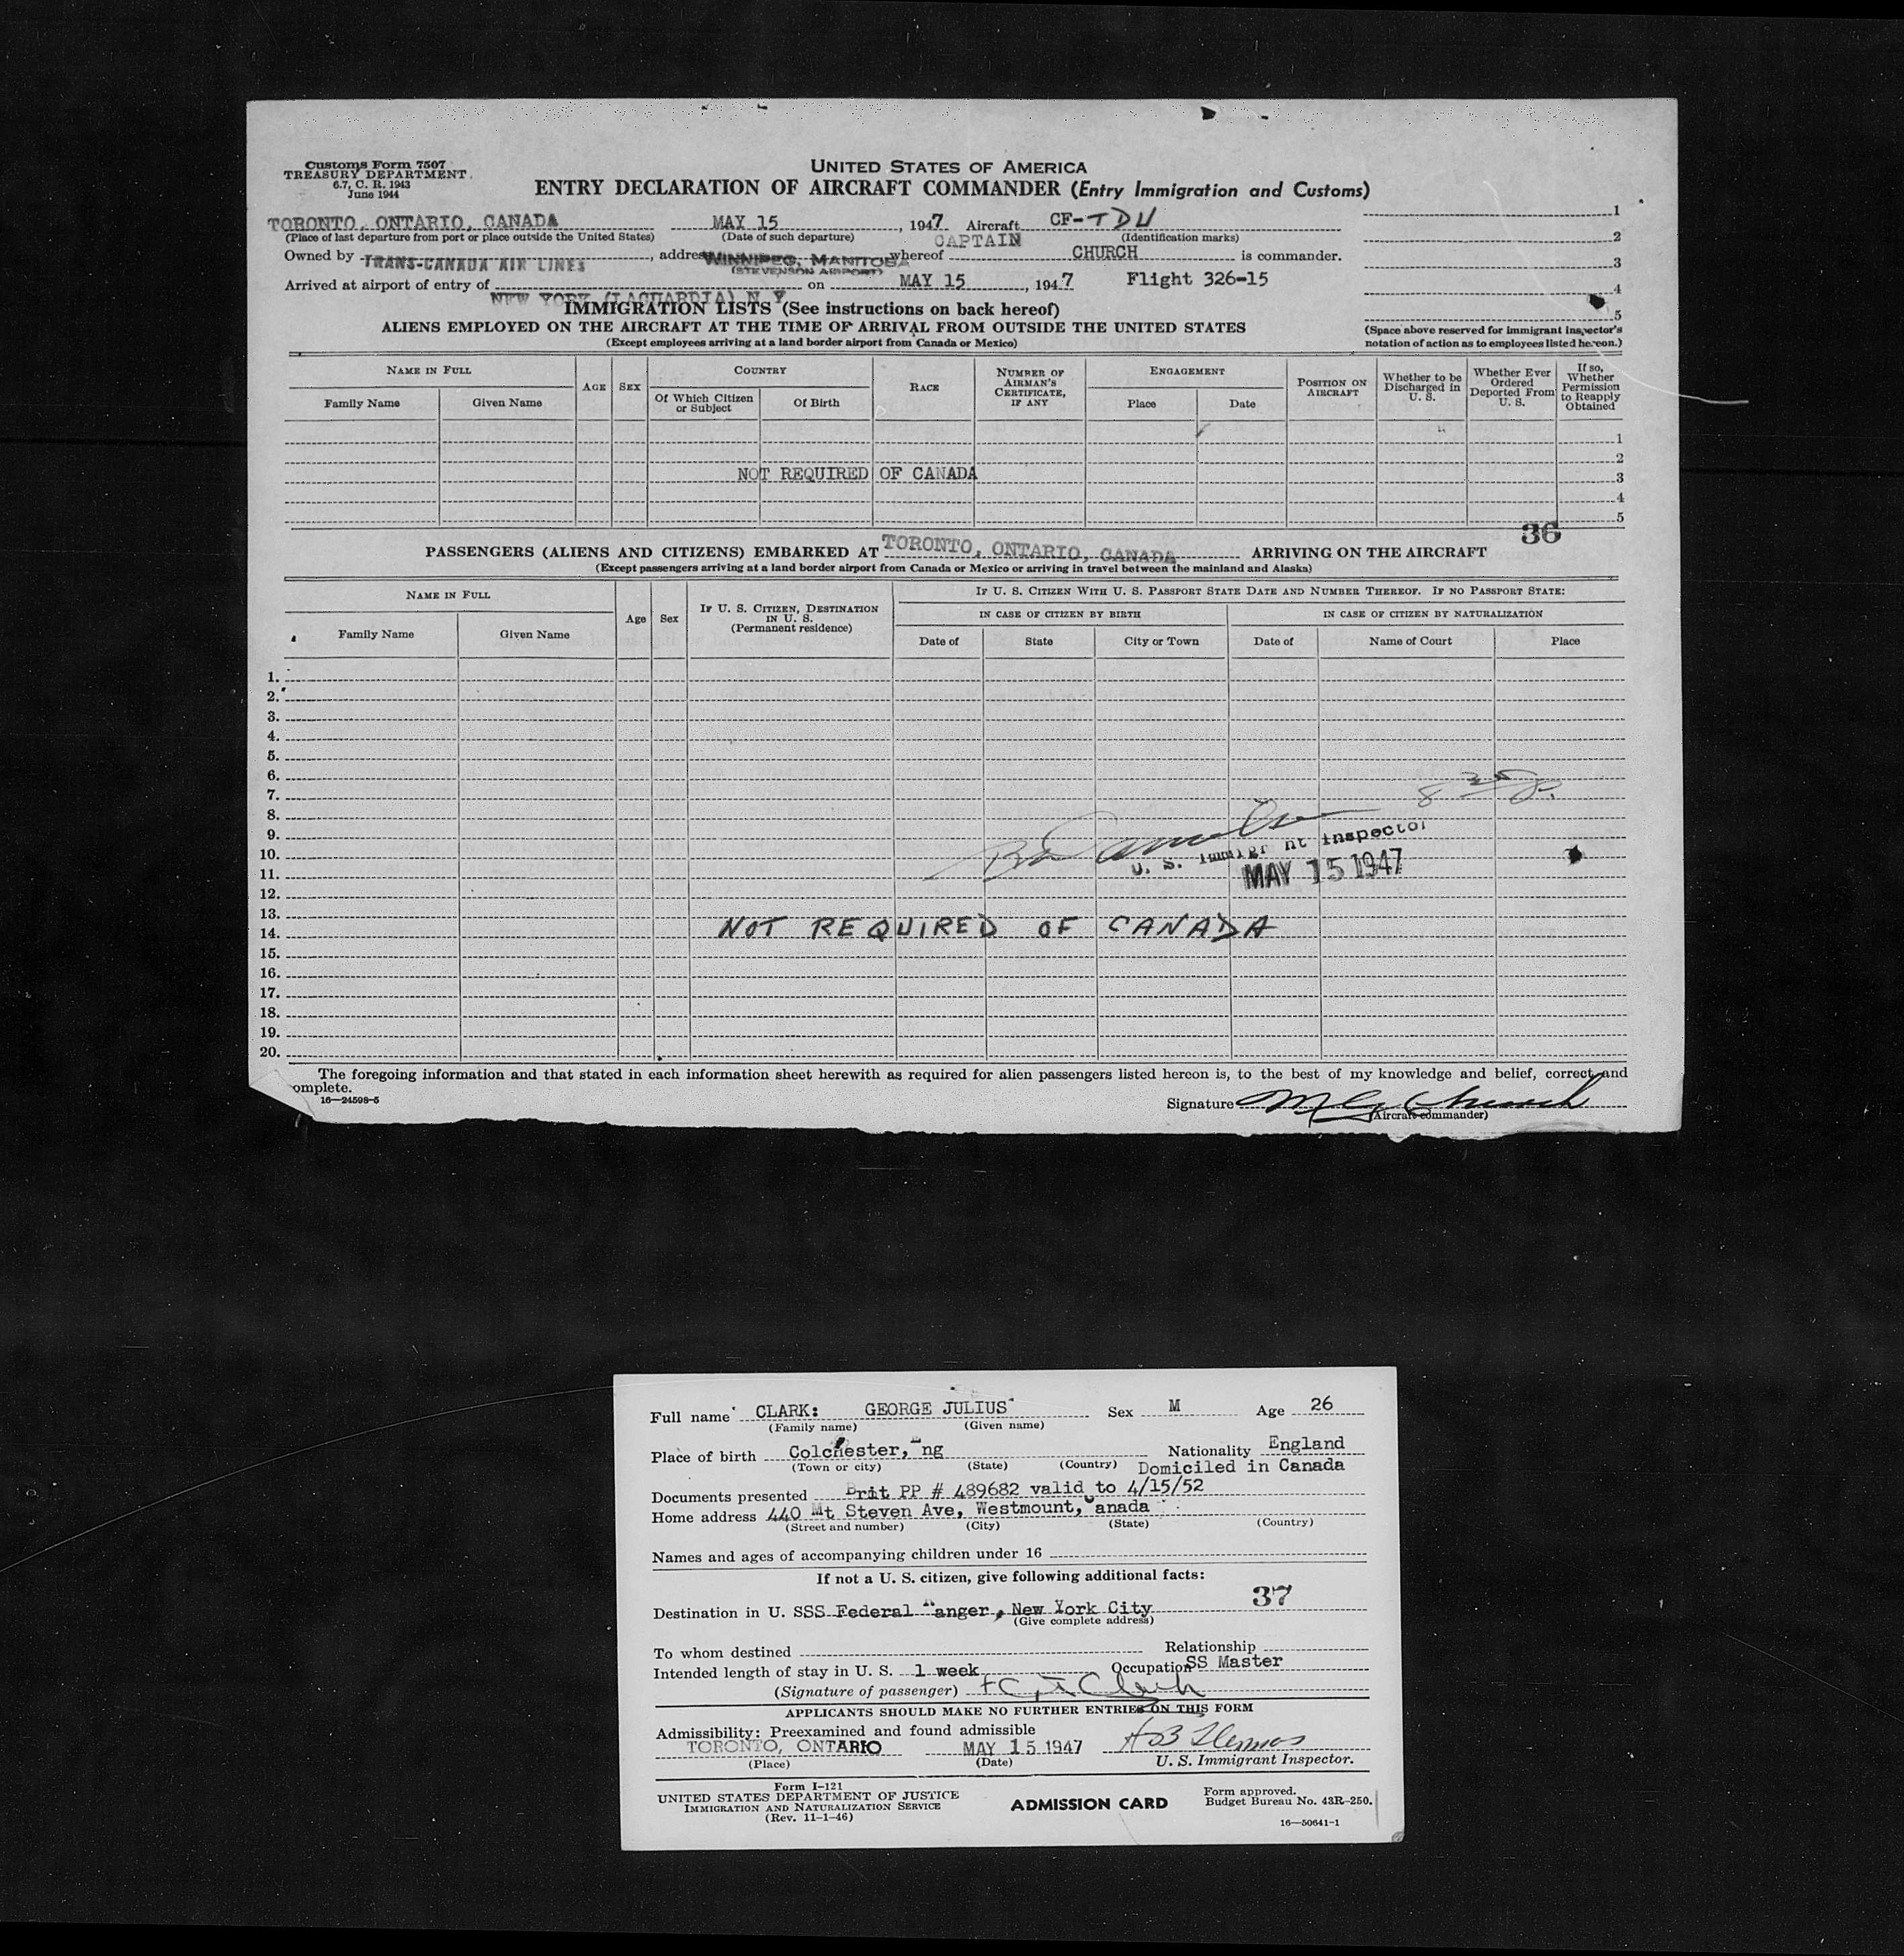 Customs Form 7507
TREASURY DEPARTMENT
6.7, C. R. 1943
June 1944
UNITED STATES OF AMERICA
ENTRY DECLARATION OF AIRCRAFT COMMANDER (Entry Immigration and Customs)
TORONTO, ONTARIO, CANADA MAY 15, 1947 Aircraft CF-TDU
(Place of last departure from port or place outside the United States) (Date of such departure) (Identification marks)
CAPTAIN
Owned by TRANS-CANADA AIR LINES, address WINNIPEG, MANITOBA whereof CHURCH is commander.
(STEVENSON AIRPORT)
Arrived at airport of entry of NEW YORK (LAGUARDIA) N Y on MAY 15, 1947 Flight 326-15
1
2
3
4
5
IMMIGRATION LISTS (See instructions on back hereof)
ALIENS EMPLOYED ON THE AIRCRAFT AT THE TIME OF ARRIVAL FROM OUTSIDE THE UNITED STATES
(Except employees arriving at a land border airport from Canada or Mexico)
(Space above reserved for immigrant inspector's
notation of action as to employees listed hereon.)
NAME IN FULL
Family Name Given Name
AGE
SEX
COUNTRY
Of Which Citizen or Subject Of Birth
RACE
NUMBER OF AIRMAN'S CERTIFICATE, IF ANY
ENGAGEMENT
Place Date
POSITION ON AIRCRAFT
Whether to be Discharged in U. S.
Whether Ever Ordered Deported From U. S.
If so, Whether Permission to Reapply Obtained
1
2
NOT REQUIRED OF CANADA 3
4
5
36
PASSENGERS (ALIENS AND CITIZENS) EMBARKED AT TORONTO, ONTARIO, CANADA ARRIVING ON THE AIRCRAFT
(Except passengers arriving at a land border airport from Canada or Mexico or arriving in travel between the mainland and Alaska)
NAME IN FULL
Family Name Given Name
Age
Sex
IF U. S. CITIZEN, DESTINATION IN U. S.
(Permanent residence)
IF U. S. CITIZEN WITH U. S. PASSPORT STATE DATE AND NUMBER THEREOF. IF NO PASSPORT STATE:
IN CASE OF CITIZEN BY BIRTH IN CASE OF CITIZEN BY NATURALIZATION
Date of State City or Town Date of Name of Court Place
1.
2.
3.
4.
5.
6.
7.
8.
9.
10.
11.
12.
13.
14.
15.
16.
17.
18.
19.
20.
U. S. Immigrant Inspector
MAY 15 1947
NOT REQUIRED OF CANADA
The foregoing information and that stated in each information sheet herewith as required for alien passengers listed hereon is, to the best of my knowledge and belief, correct and
omplete.
16—24598-5
Signature Church
(Aircraft commander)
Full name CLARK: GEORGE JULIUS Sex M Age 26
(Family name) (Given name)
Place of birth Colchester, Eng Nationality England
(Town or city) (State) (Country) Domiciled in Canada
Documents presented Brit PP # 489682 valid to 4/15/52
Home address 440 Mt Steven Ave, Westmount, Canada
(Street and number) (City) (State) (Country)
Names and ages of accompanying children under 16
If not a U. S. citizen, give following additional facts:
37
Destination in U. SSS Federal Ranger, New York City
(Give complete address)
To whom destined Relationship
Intended length of stay in U. S. 1 week Occupation SS Master
(Signature of passenger) Clark
APPLICANTS SHOULD MAKE NO FURTHER ENTRIES ON THIS FORM
Admissibility: Preexamined and found admissible
TORONTO, ONTARIO MAY 15 1947
(Place) (Date) U. S. Immigrant Inspector.
Form I-121
UNITED STATES DEPARTMENT OF JUSTICE
IMMIGRATION AND NATURALIZATION SERVICE
(Rev. 11-1-46)
ADMISSION CARD
Form approved.
Budget Bureau No. 43R-250.
16—50641-1